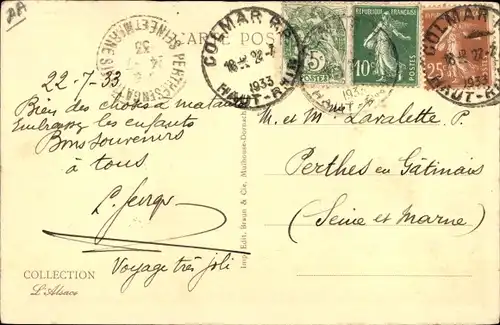 AA
CARTE POSTALE
COLMAR R.P.
18 H 22-7
1933
HAUT-RHIN
5
POSTES
10
POSTES
25
COLMAR
18 H 22-7
1933
HAUT-RHIN
PERTHES-EN-GATINAIS
SEINE ET MARNE
33
22-7-33
Bien des choses à
Embrassez les enfants
Bons souvenirs
à tous
Voyage très joli
COLLECTION
L'Alsace
Imp. Edit. Braun & Cie, Mulhouse-Dornach
M. et Mme Lavalette P.
Perthes en Gâtinais
(Seine et Marne)